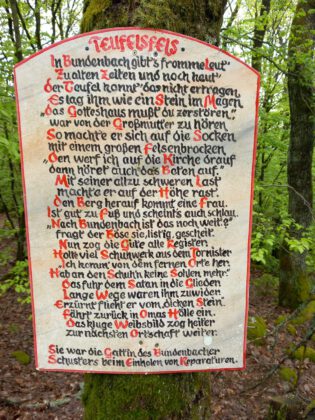 Teufelsfels
In Bundenbach gibt's fromme Leut'
Zu alten Zeiten und noch heut'
der Teufel konnt' das nicht ertragen,
Es lag ihm wie ein Stein im Magen
„das Gotteshaus mußt' du zerstören,"
war von der Großmutter zu hören.
So macht'e er sich auf die Socken
mit einem großen Felsenbrocken
den werf' ich auf die Kirche drauf
dann höret auch das Beten auf."
Mit seiner allzu schweren Last
macht'e er auf der Höhe rast.
Den Berg herauf kommt eine Frau.
Ist gut zu Fuß und scheint's auch schlau.
„Nach Bundenbach ist das noch weit?"
fragt der Böse sie, listig, gescheit.
Nun zog die Gute alle Register,
Holte viel Schuhwerk aus dem Tornister
„Ich komm' von dem fernen Orte her,
Hab an den Schuh'n keine Sohlen mehr."
Das fuhr dem Satan in die Glieder
Lange Wege waren ihm zuwider.
Erzürnt flieht er vom „dicken Stein"
Fährt zurück in Omas Hölle ein.
Das kluge Weibsbild zog heiter
zur nächsten Ortschaft weiter.
Sie war die Gattin des Bundenbacher
Schusters beim Einholen von Reparaturen.